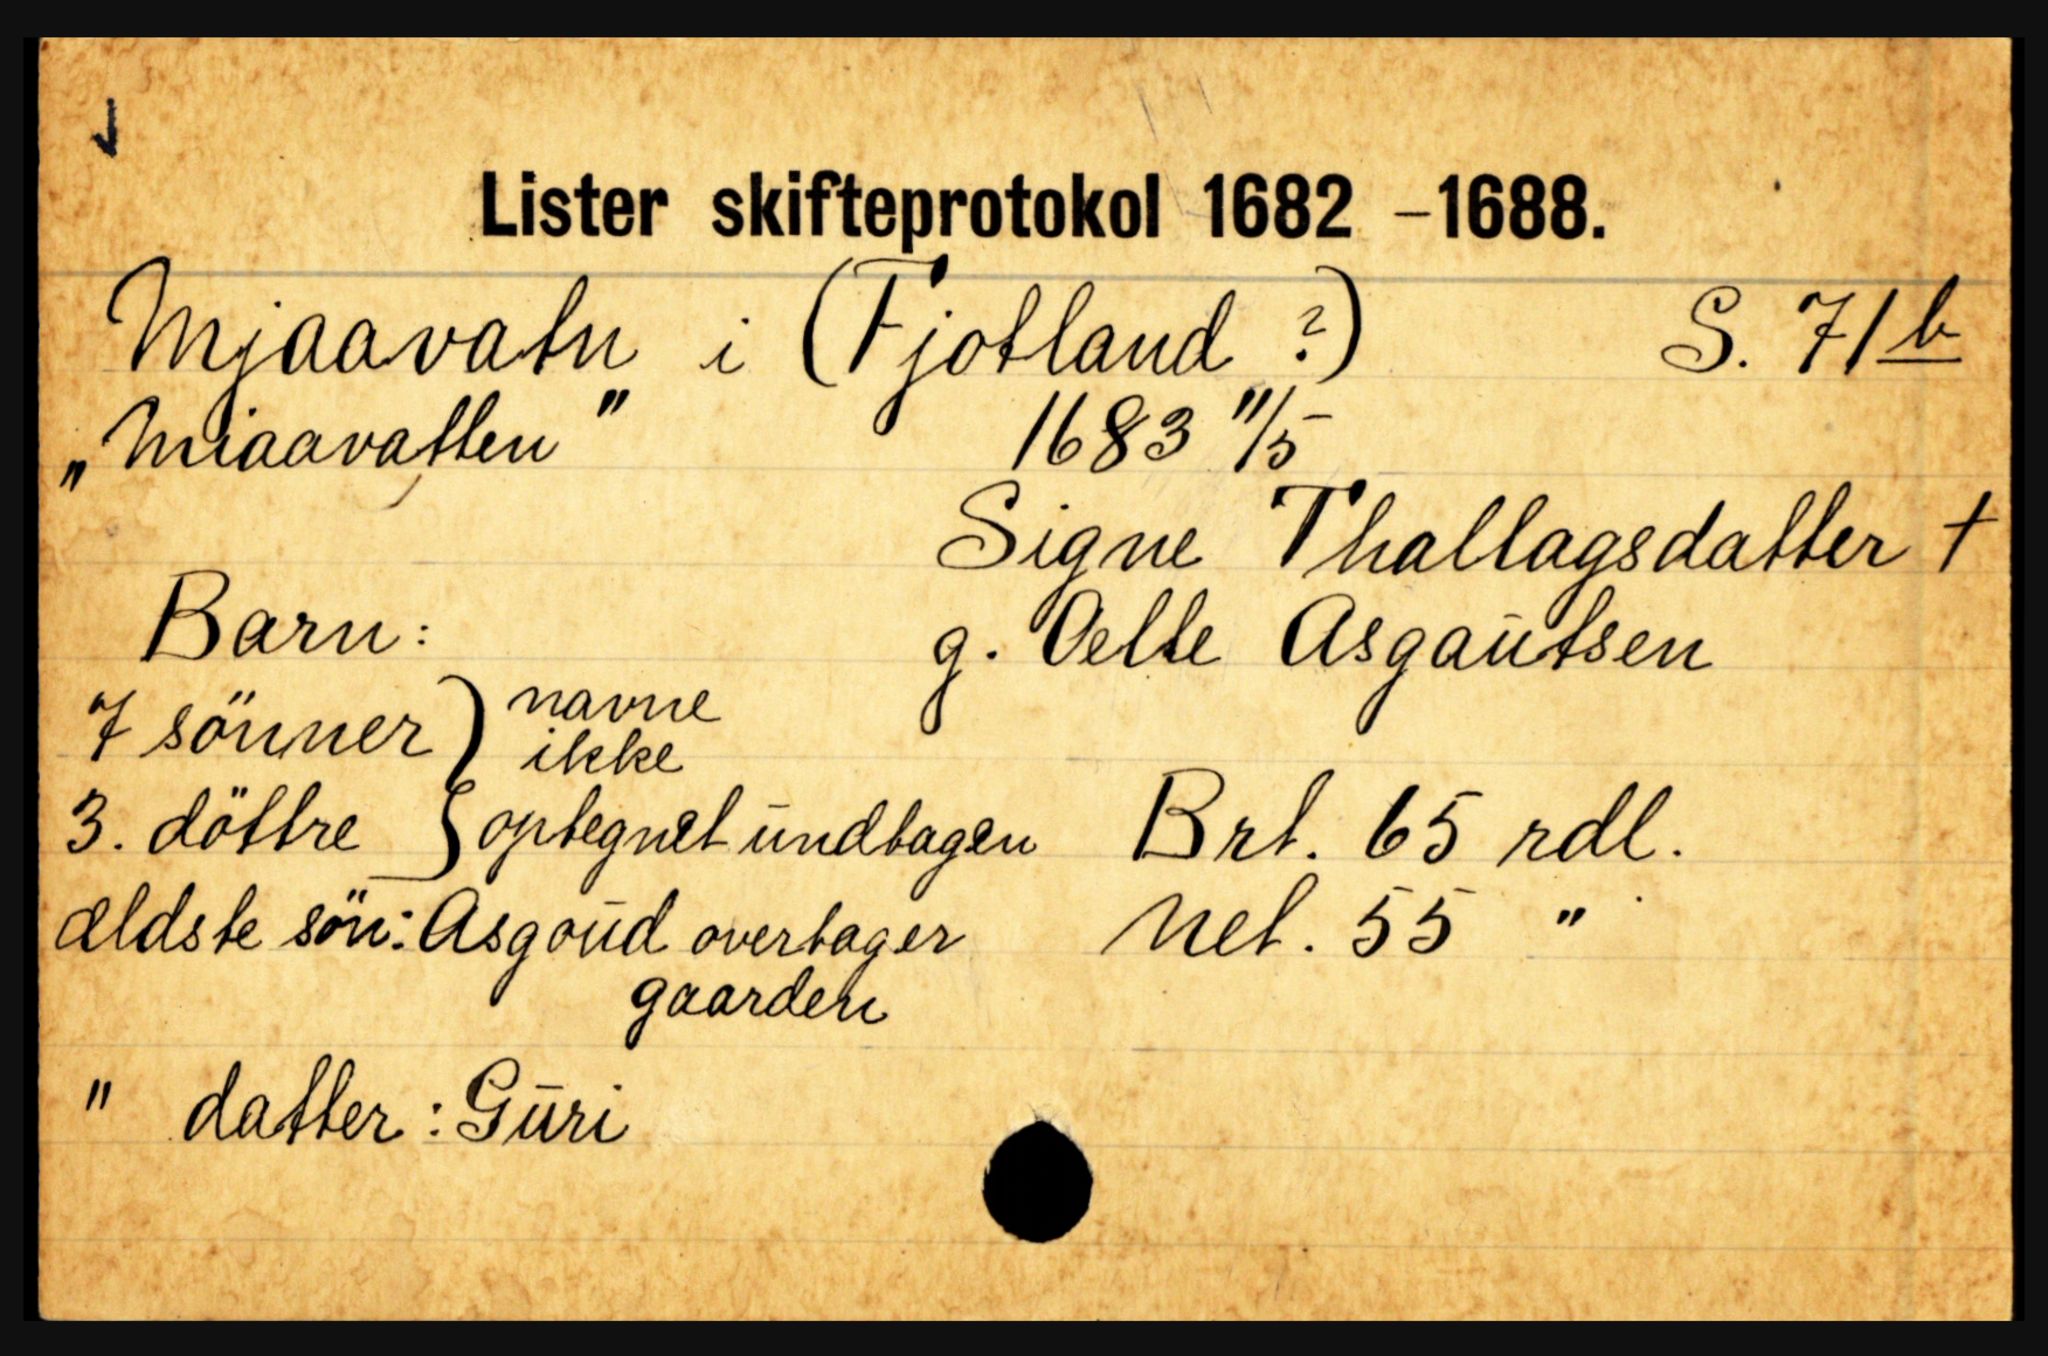 Lister skifteprotokol 1682 – 1688.
Mjaavatn i (Fjotland ?) S. 71 b
„Miaavatten" 1683 11/5
Signe Thallagsdatter †
Barn: g. Oelle Asgautsen
7 sönner } navne
ikke
3. döttre } optegnet undtagen Brt. 65 rdl.
ældste sön: Asgoud overtager Net. 55 "
gaarden
" datter: Guri